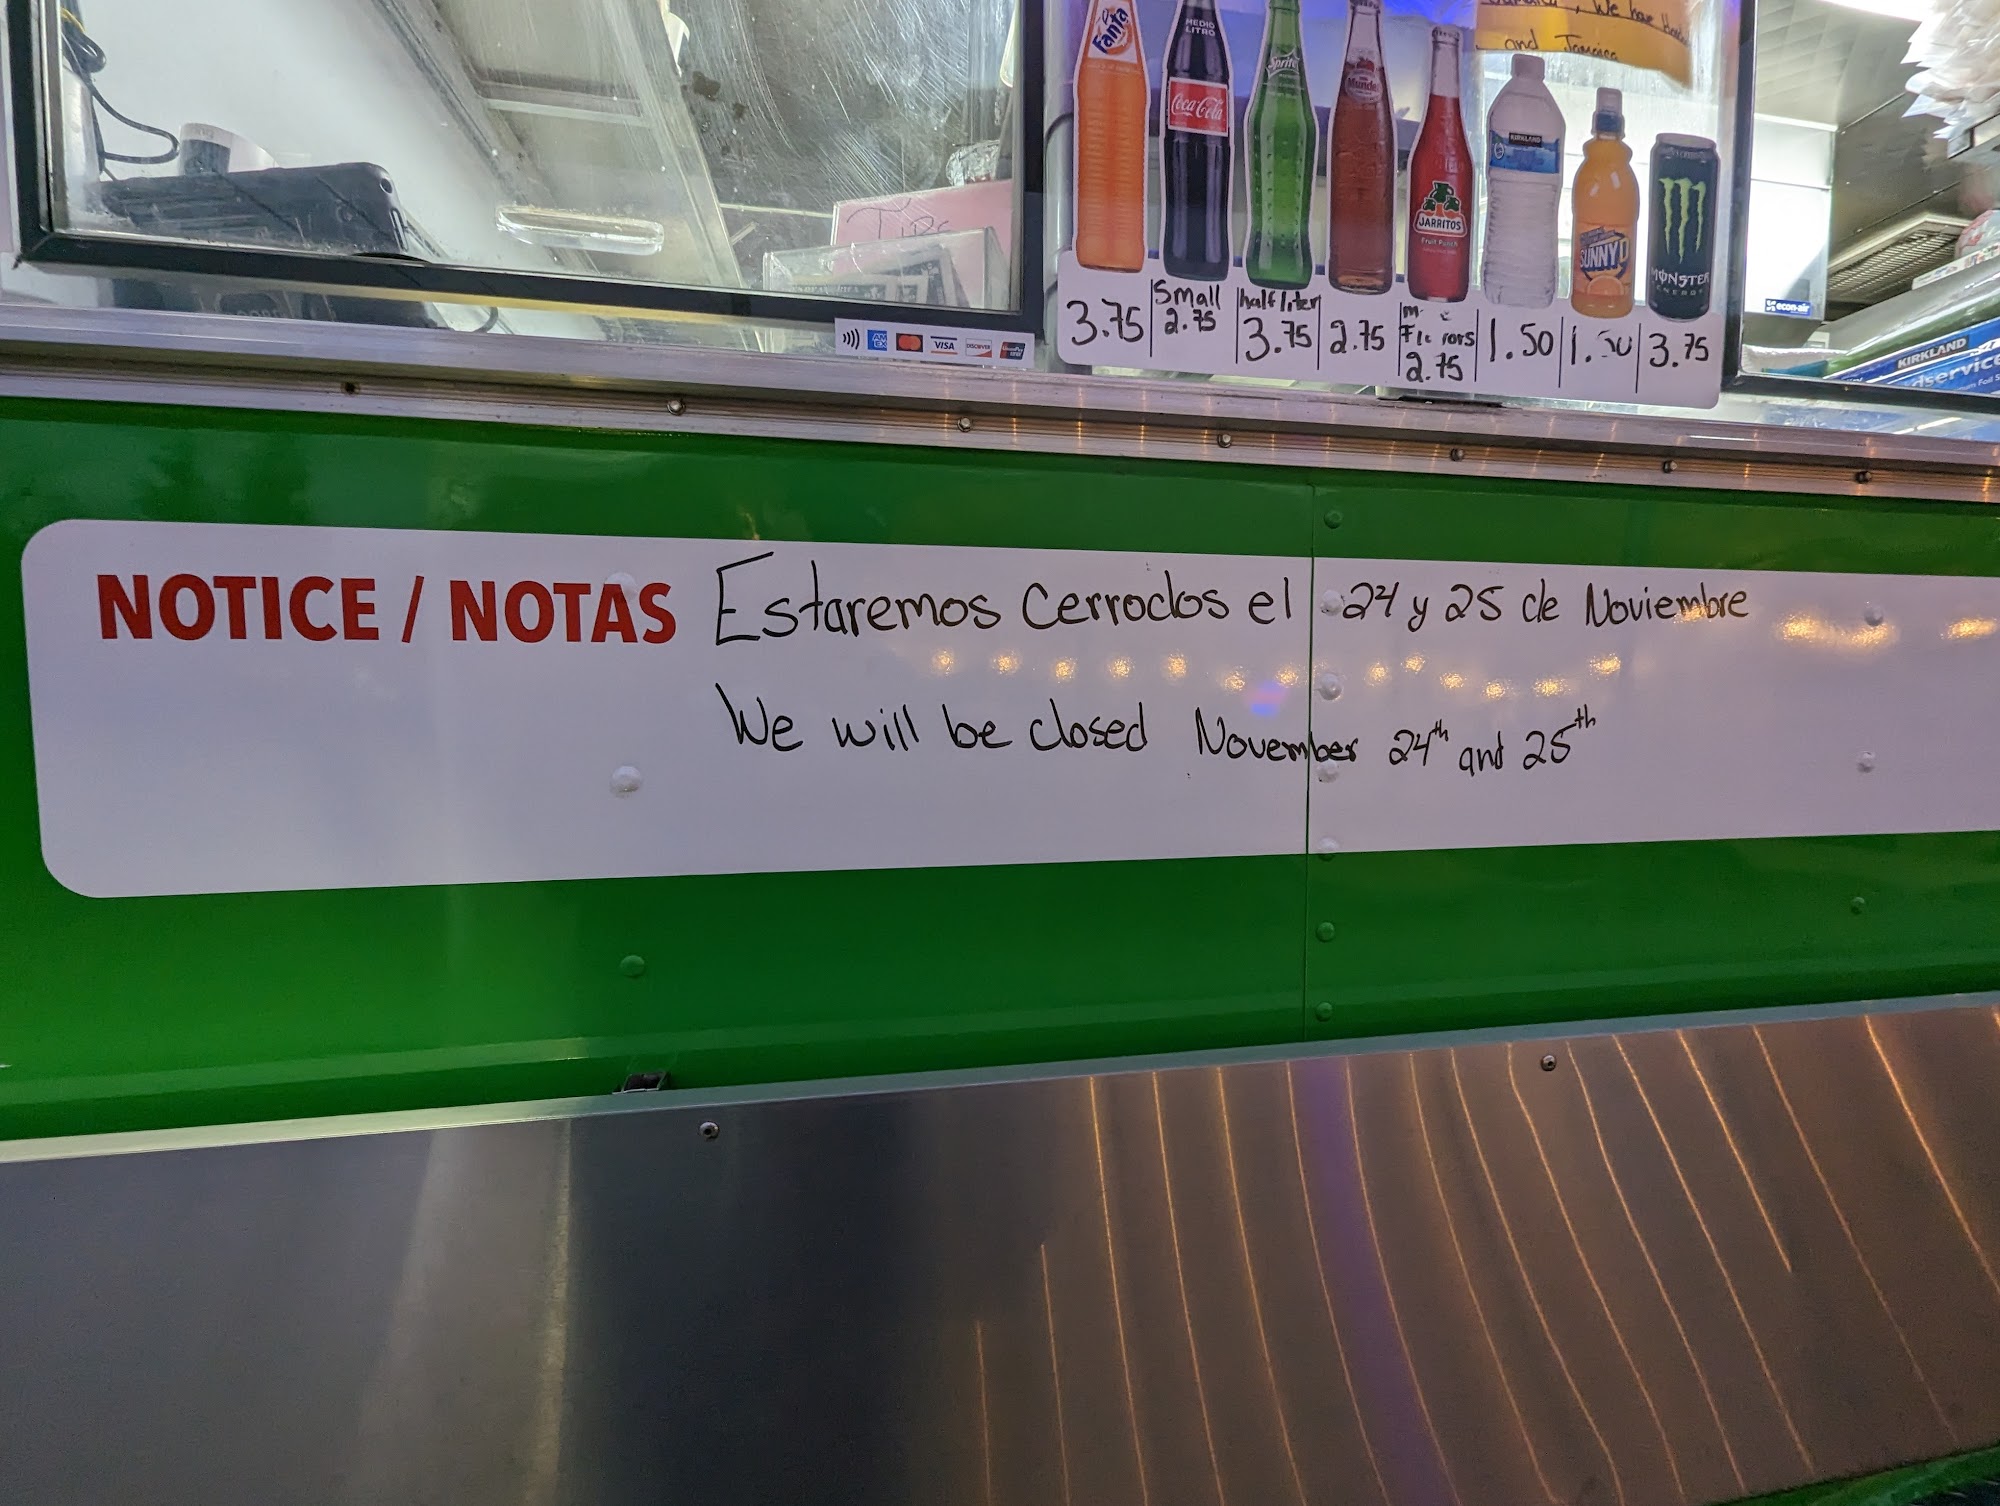 Fanta
MEDIO
LITRO
Coca-Cola
Sprite
Mundet
JARRITOS
Fruit Punch
KIRKLAND
SUNNYD
MONSTER
ENERGY
We have
and Jamaica
Tips
3.75
Small
2.75
half liter
3.75
2.75
2.75
1.50
3.75
AMEX
VISA
DISCOVER
econ-air
KIRKLAND
NOTICE / NOTAS
Estaremos Cerrados el 24 y 25 de Noviembre
We will be closed November 24th and 25th